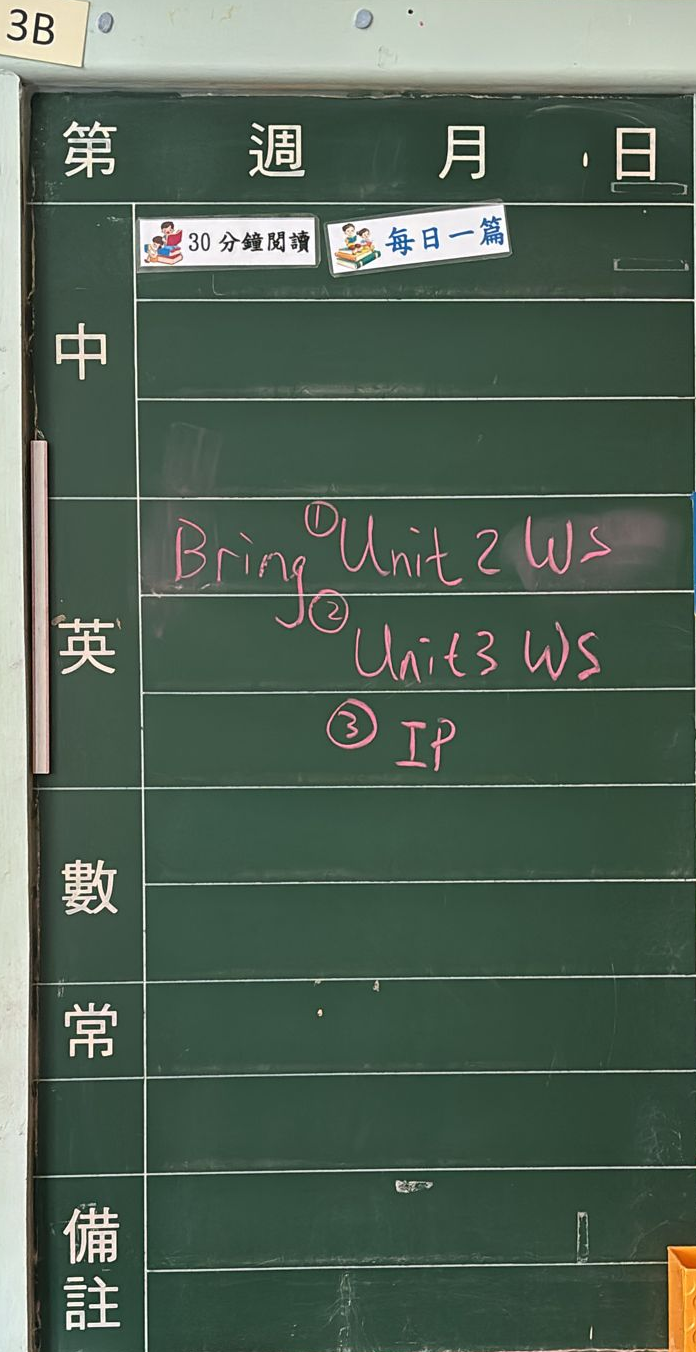 3B
第 週 月 日
30 分鐘閱讀 每日一篇
中
Bring ① Unit 2 WS
英 ② Unit 3 WS
③ IP
數
常
備
註